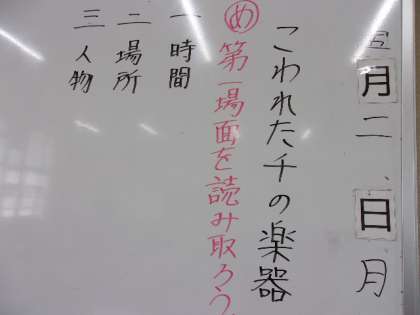 五月二日月
こわれた千の楽器
め第一場面を読み取ろう。
一時間
二場所
三人物